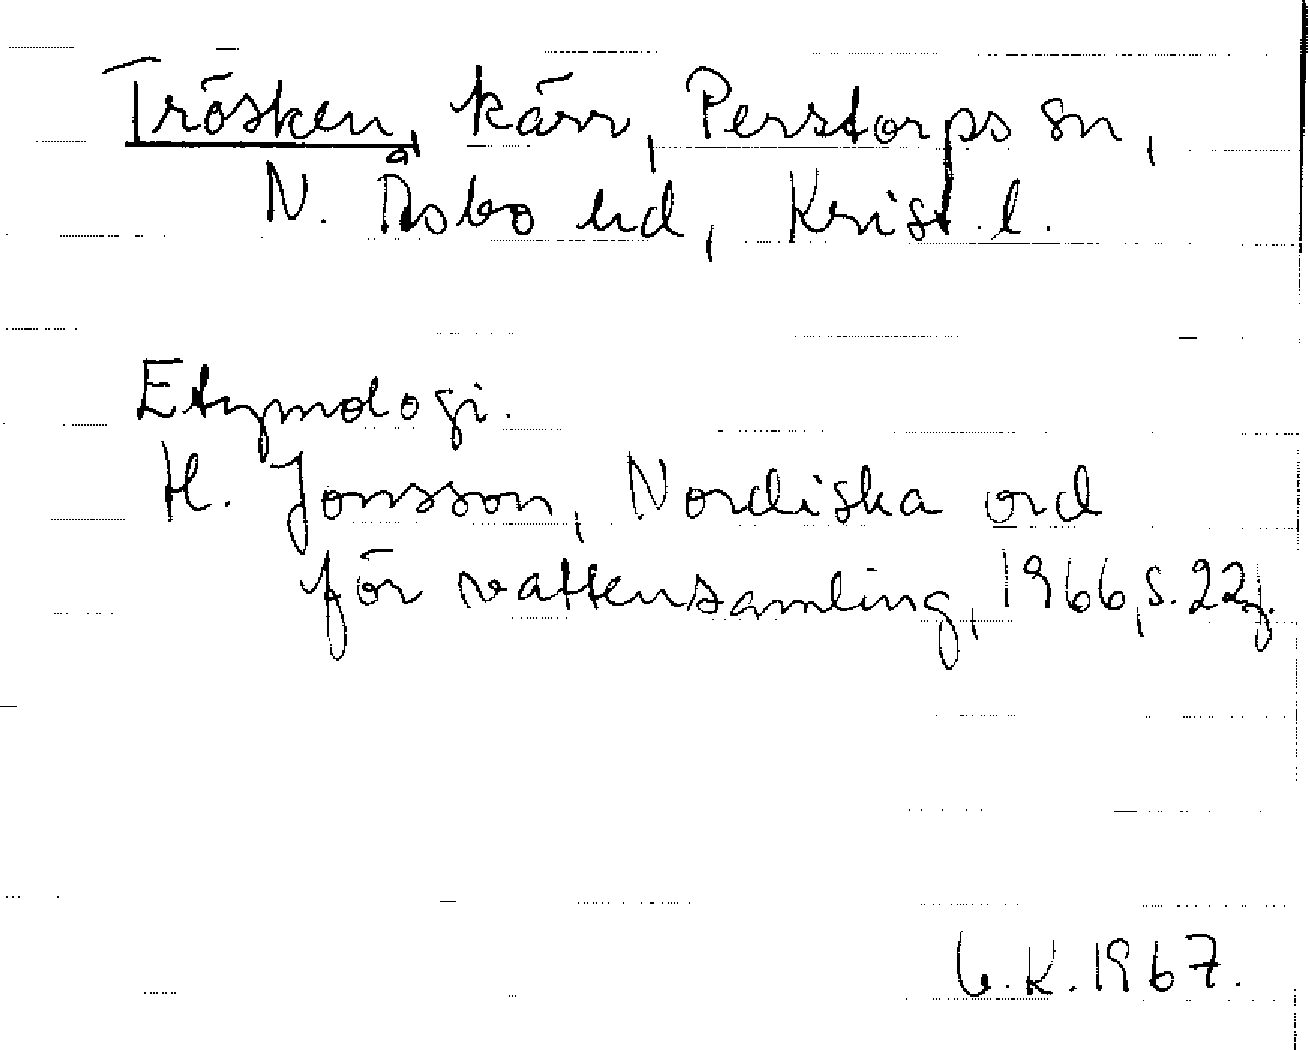 Trösken, kärr, Perstorps sn,
N. Åsbo hd, Krist. l.
Etymologi.
H. Jonsson, Nordiska ord
för vattensamling, 1966, s. 22f.
G.K. 1967.